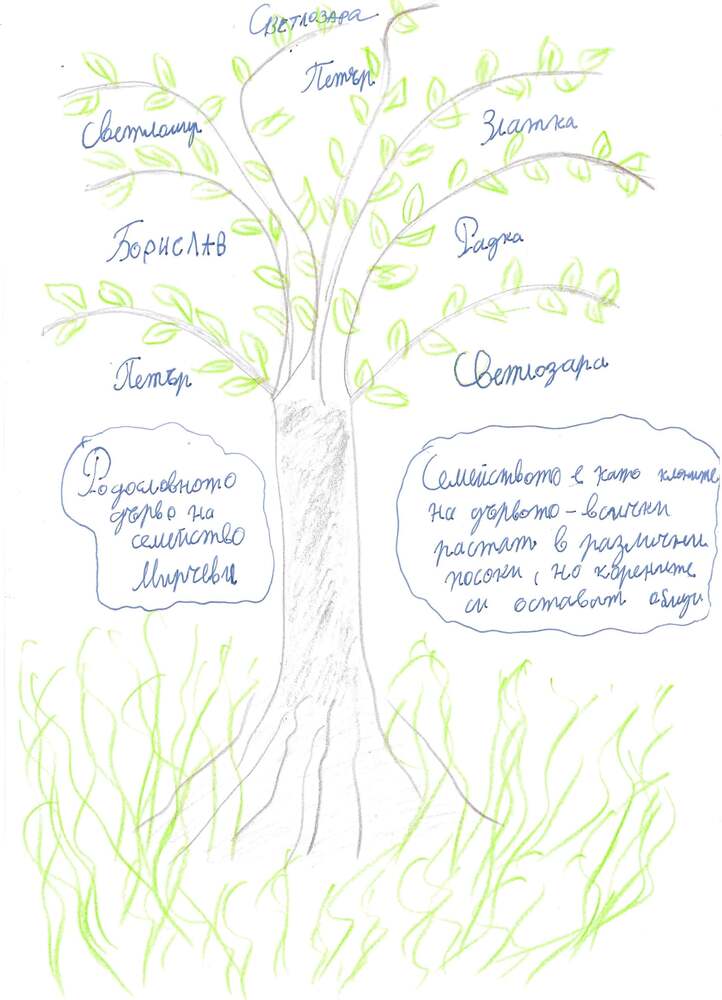 Светлозара
Петър
Светломир
Златка
Борислав
Радка
Петър
Светлозара
Родословното
дърво на
семейство
Мирчеви
Семейството е като клоните
на дървото – всички
растат в различни
посоки, но корените
си остават общи